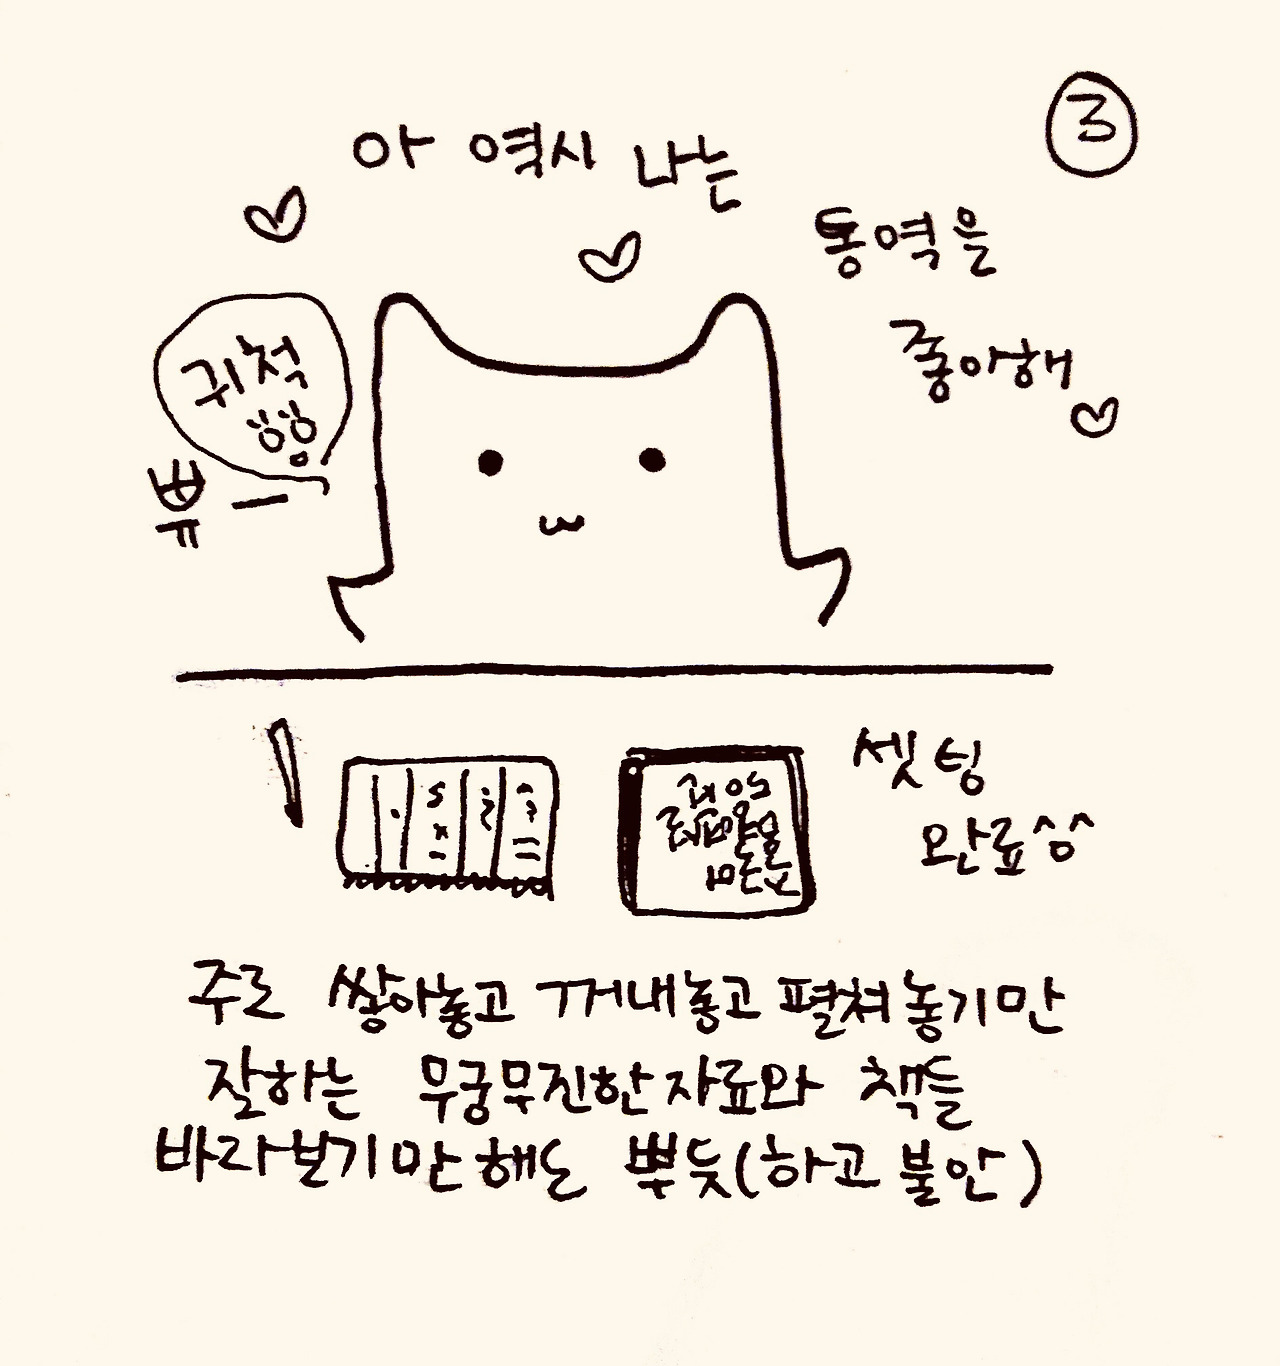 ③
아 역시 나는
통역을
좋아해
귀척
쀼 —
셋팅
완료^^
주로 쌓아놓고 꺼내놓고 펼쳐놓기만
잘하는 무궁무진한 자료와 책들
바라보기만 해도 뿌듯(하고 불안)